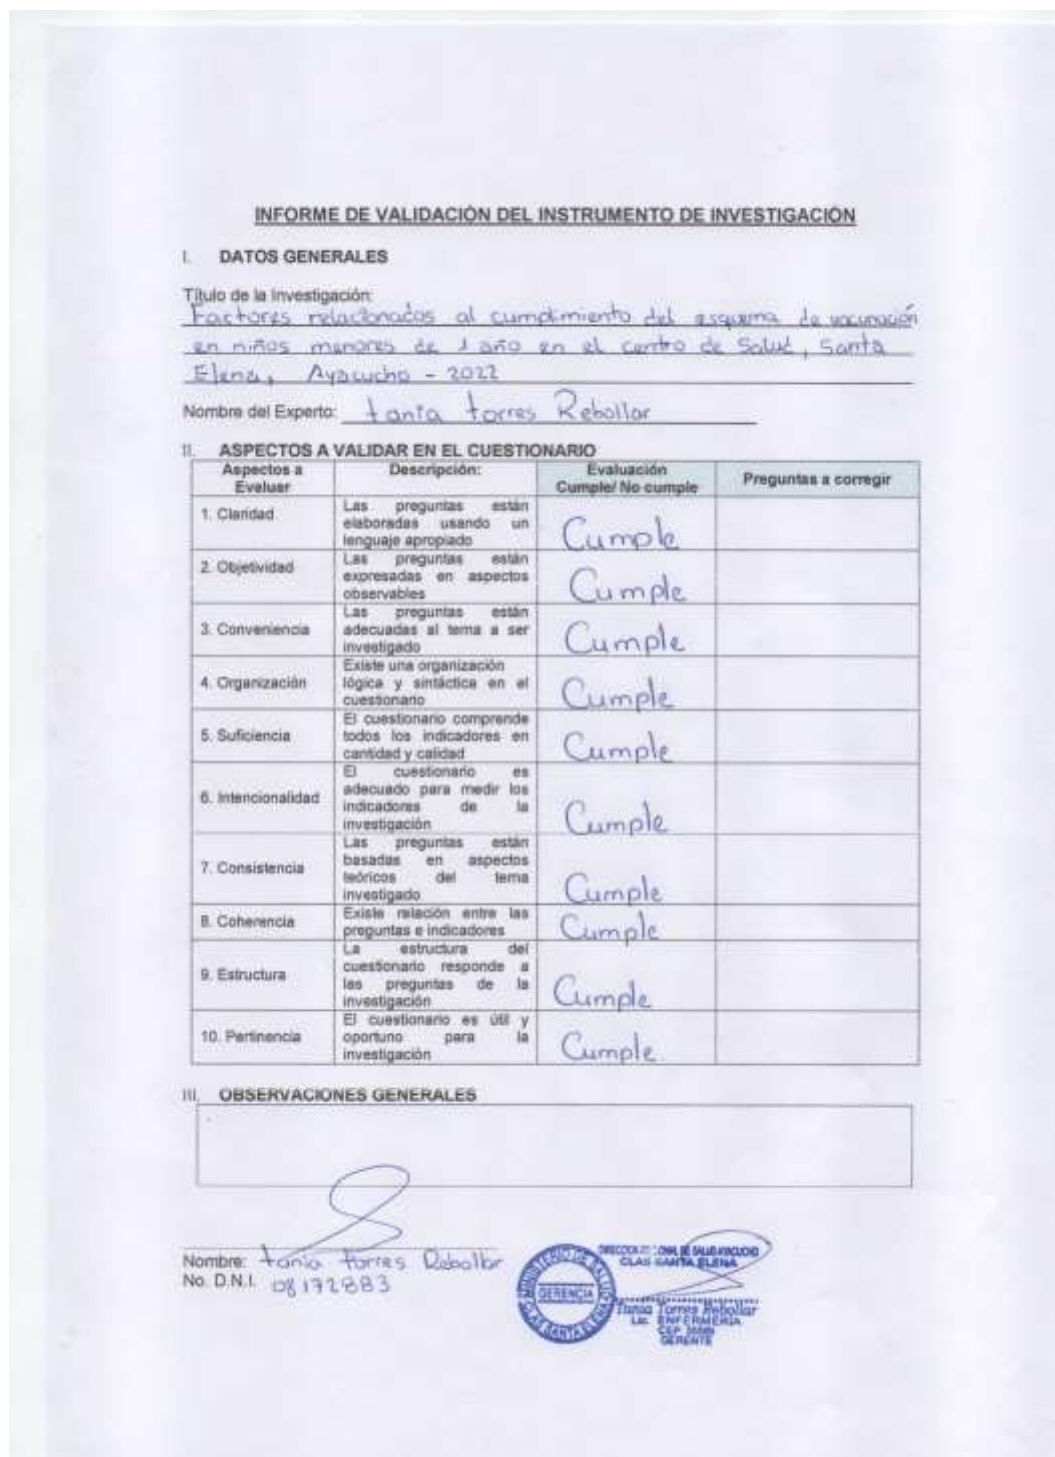 INFORME DE VALIDACIÓN DEL INSTRUMENTO DE INVESTIGACIÓN
I. DATOS GENERALES
Título de la Investigación:
Factores relacionados al cumplimiento del esquema de vacunación
en niños menores de 1 año en el centro de Salud, Santa
Elena, Ayacucho - 2022
Nombre del Experto: tania torres Rebollar
II. ASPECTOS A VALIDAR EN EL CUESTIONARIO
Aspectos a Evaluar Descripción: Evaluación Cumple/ No cumple Preguntas a corregir
1. Claridad Las preguntas están elaboradas usando un lenguaje apropiado Cumple
2. Objetividad Las preguntas están expresadas en aspectos observables Cumple
3. Conveniencia Las preguntas están adecuadas al tema a ser investigado Cumple
4. Organización Existe una organización lógica y sintáctica en el cuestionario Cumple
5. Suficiencia El cuestionario comprende todos los indicadores en cantidad y calidad Cumple
6. Intencionalidad El cuestionario es adecuado para medir los indicadores de la investigación Cumple
7. Consistencia Las preguntas están basadas en aspectos teóricos del tema investigado Cumple
8. Coherencia Existe relación entre las preguntas e indicadores Cumple
9. Estructura La estructura del cuestionario responde a las preguntas de la investigación Cumple
10. Pertinencia El cuestionario es útil y oportuno para la investigación Cumple
III. OBSERVACIONES GENERALES
Nombre: tania torres Rebollar
No. D.N.I. 08172883
MINISTERIO DE SALUD
GERENCIA
CLAS SANTA ELENA
DE SALUD AYACUCHO
CLAS SANTA ELENA
Tania Torres Rebollar
Lic. ENFERMERIA
CEP
GERENTE